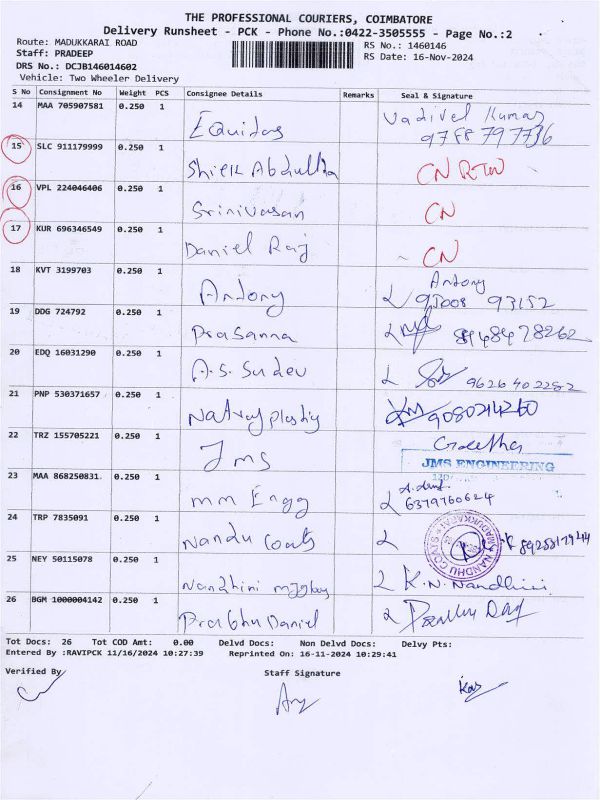 THE PROFESSIONAL COURIERS, COIMBATORE
Delivery Runsheet - PCK - Phone No.:0422-3505555 - Page No.:2
Route: MADUKKARAI ROAD RS No.: 1460146
Staff: PRADEEP RS Date: 16-Nov-2024
DRS No.: DCJB146014602
Vehicle: Two Wheeler Delivery
S No Consignment No Weight PCS Consignee Details Remarks Seal & Signature
14 MAA 705907581 0.250 1 Equitas Vadivel Kumar
9788797736
15 SLC 911179999 0.250 1 Shiek Abdulla CN RTN
16 VPL 224046406 0.250 1 Srinivasan CN
17 KUR 696346549 0.250 1 Daniel Raj CN
18 KVT 3199703 0.250 1 Antony Antony
95008 93152
19 DDG 724792 0.250 1 Prasanna 8948478262
20 EDQ 16031290 0.250 1 A.S. Sudev 9626402282
21 PNP 530371657 0.250 1 Natraj plastiy 9080214260
22 TRZ 155705221 0.250 1 Jms Geetha
JMS ENGINEERING
23 MAA 868250831 0.250 1 mm Engg 6379760624
24 TRP 7835091 0.250 1 Nandu Coats
25 NEY 50115078 0.250 1 Nandhini K.N. Nandhini
26 BGM 1000004142 0.250 1 Prabhu Daniel
Tot Docs: 26 Tot COD Amt: 0.00 Delvd Docs: Non Delvd Docs: Delvy Pts:
Entered By :RAVIPCK 11/16/2024 10:27:39 Reprinted On: 16-11-2024 10:29:41
Verified By Staff Signature